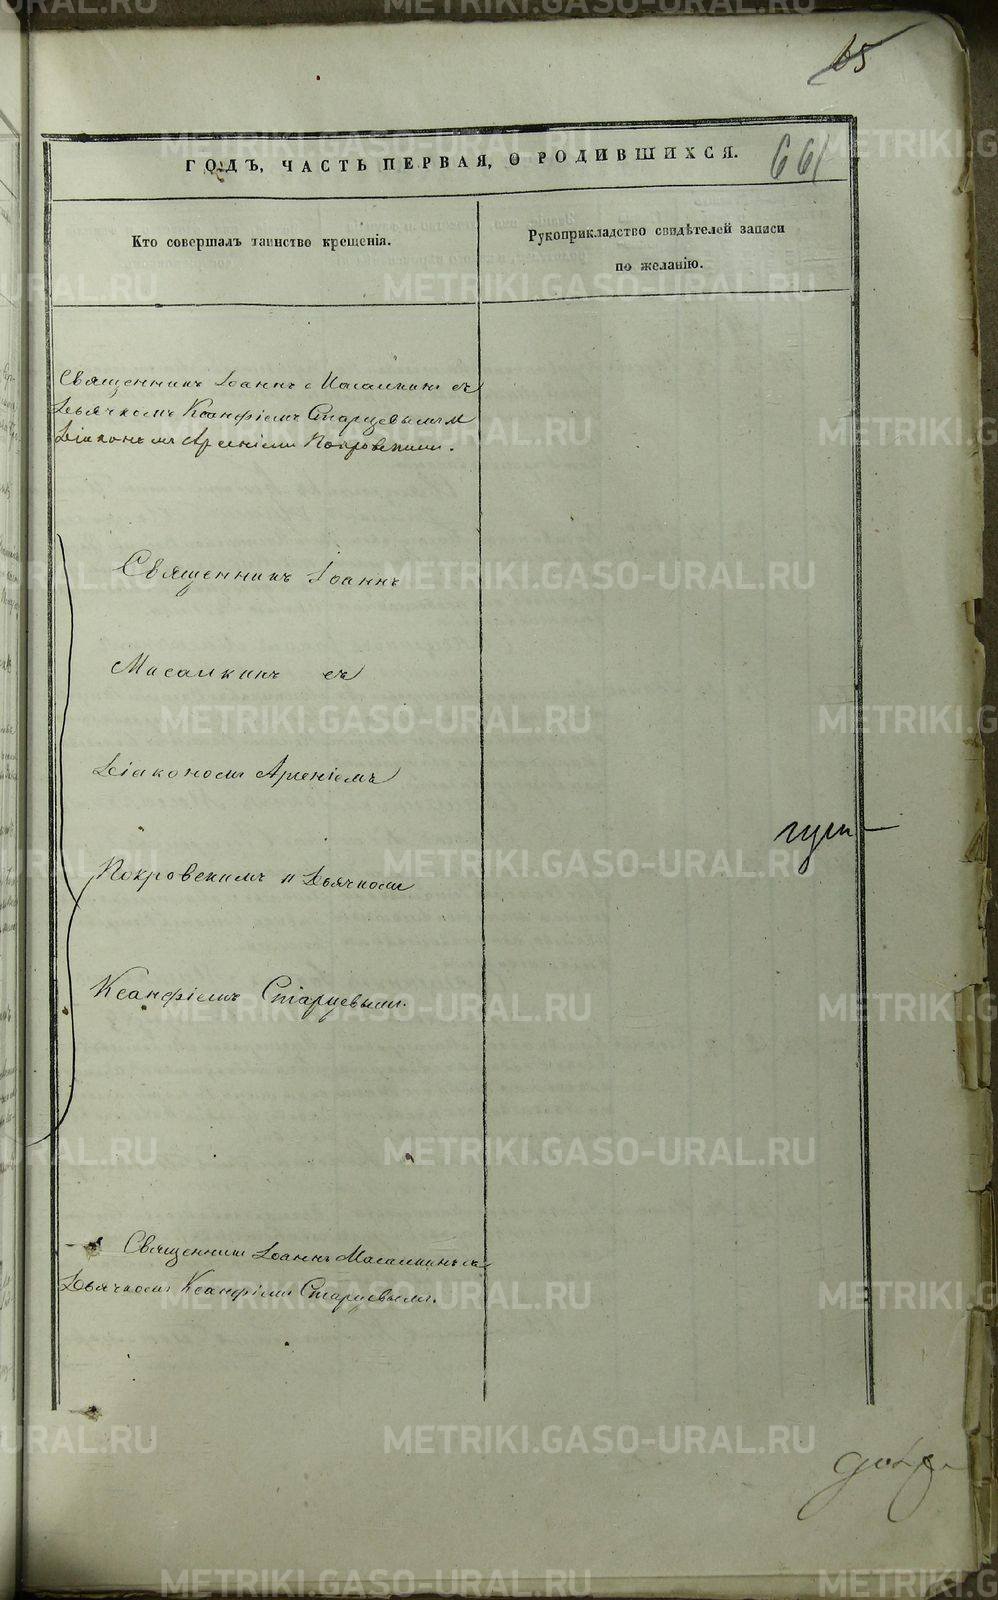 65
ГОДЪ, ЧАСТЬ ПЕРВАЯ, О РОДИВШИХСЯ.
661
Кто совершалъ таинство крещенія.
Рукоприкладство свидѣтелей записи
по желанію.
Священникъ Іоаннъ Масалкинъ съ
Дьячкомъ Ксанфіемъ Старцевымъ и
Діакономъ Арсеніемъ Покровскимъ.
Священникъ Іоаннъ
Масалкинъ съ
Діакономъ Арсеніемъ
Покровскимъ и Дьячкомъ
Ксанфіемъ Старцевымъ.
Священникъ Іоаннъ Масалкинъ съ
Дьячкомъ Ксанфіемъ Старцевымъ.
METRIKI.GASO-URAL.RU